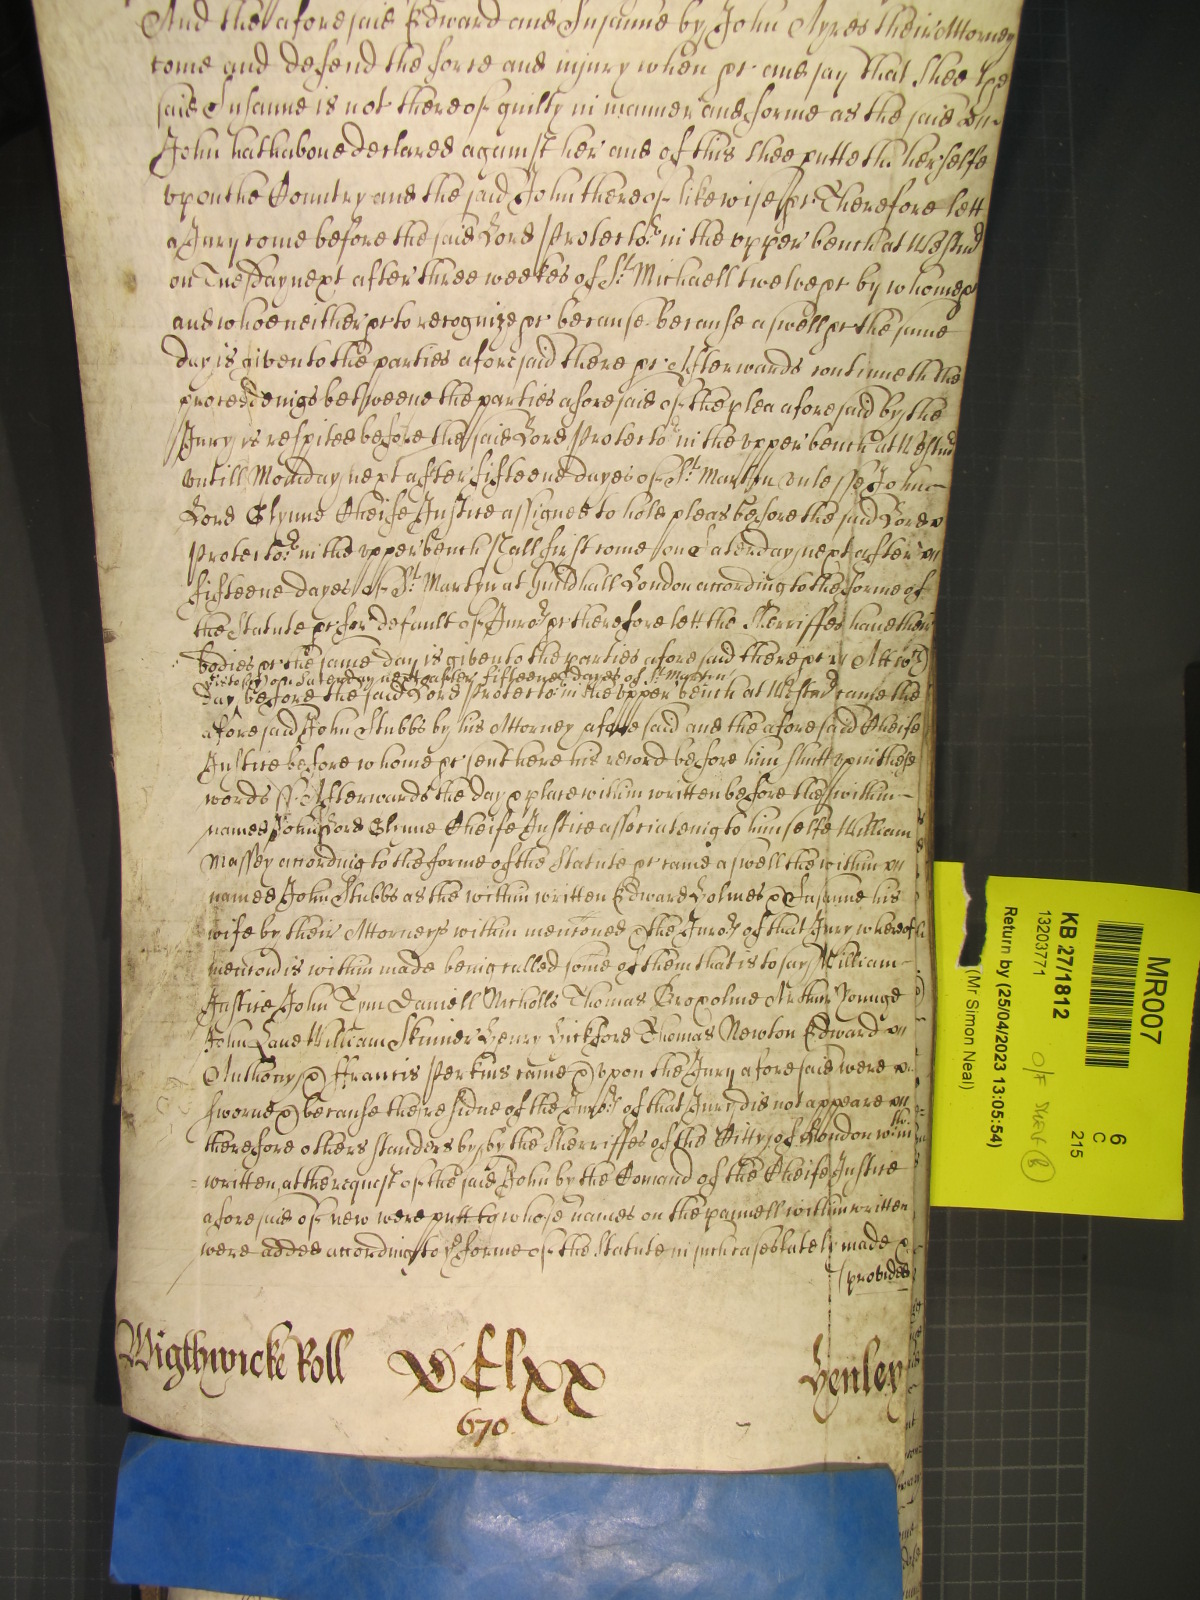 And the aforesaid Edward and Susanne by John Ayres their Attorney
come and defend the force and injury when &c and say that shee the
said Susanne is not thereof guilty in manner and forme as the said
John hath above declared against her and of this shee putteth her selfe
upon the Country and the said John thereof likewise &c Therefore lett
a Jury come before the said Lord Protector in the upper bench at Westmr
on Tuesday next after three weekes of St Michaell twelve &c by whome &c
and whoe neither &c to recognize &c because because aswell &c the same
day is given to the parties aforesaid there &c Afterwards continueth the
proceedeings betweene the parties aforesaid of the plea aforesaid by the
Jury is respited before the said Lord Protector in the upper bench at Westmr
untill Monday next after fifteene dayes of St Martyn unlesse John
Lord Glynne Cheife Justice assigned to hold pleas before the said Lord
Protector in the upper bench shall first come on Saterday next after
fifteene dayes of St Martyn at Guildhall London according to the forme of
the Statute &c for default of Jurors &c therefore lett the Sherriffes have their
bodies &c the same day is given to the parties aforesaid there &c Att
on Saterday next after fifteene dayes of St Martin
day before the said Lord Protector in the upper bench at Westmr came the
aforesaid John Stubbs by his Attorney aforesaid and the aforesaid Cheife
Justice before whome &c sent here his record before him shutt up in these
words ss Afterwards the day & place within written before the within
named John Lord Glynne Cheife Justice associateing to himselfe William
Massey according to the forme of the Statute &c came aswell the within
named John Stubbs as the within written Edward Holmes & Susanne his
wife by their Attorneys within mentoned & the Jurors of that Jury whereof
mencon is within made being called some of them that is to say William
Justice John Tym Daniell Nicholls Thomas Broxolme Arthur Younge
John Lane William Skinner Henry Bickford Thomas Newton Edward
Anthony & Ffrancis Perkins came & upon the Jury aforesaid were
sworne & because the residue of the Jurors of that Jury did not appeare
therefore others standers by by the Sherriffes of the Citty of London within
written at the request of the said John by the Comand of the Cheife Justice
aforesaid of new were putt to whose names on the pannell within written
were added according to ye forme of the Statute in such case lately made &
provided
Wigthwicke Roll DClxx Henley
670
MR007
KB 27/1812
13203771
Return by (25/04/2023 13:05:54)
(Mr Simon Neal)
6
C
215
O/F SHELF B